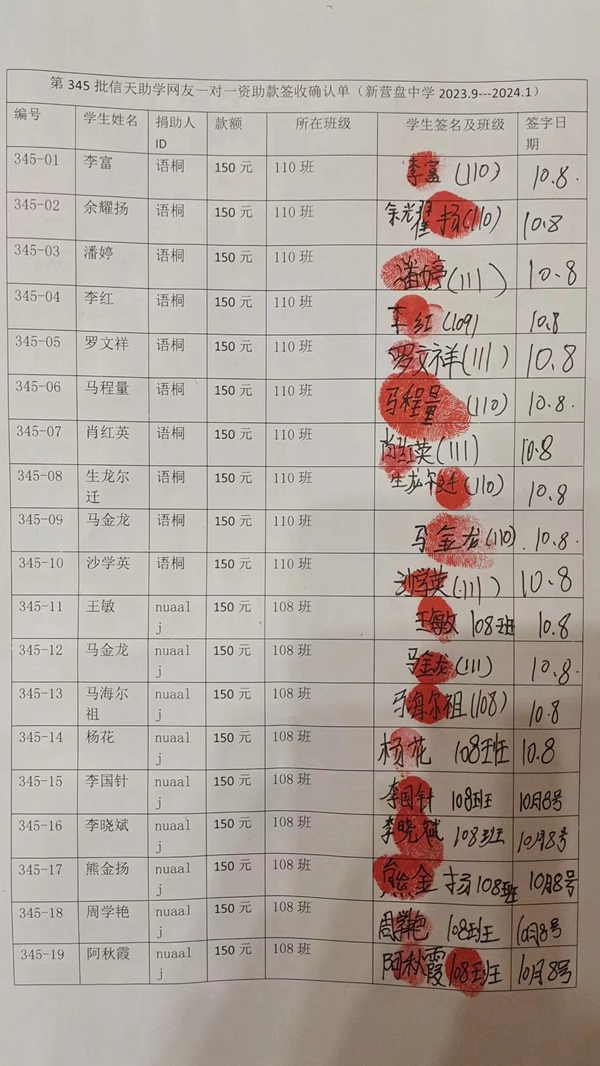 第 345 批信天助学网友一对一资助款签收确认单（新营盘中学 2023.9---2024.1）
编号 学生姓名 捐助人 ID 款额 所在班级 学生签名及班级 签字日期
345-01 李富 语桐 150 元 110 班 李富 (110) 10.8.
345-02 余耀扬 语桐 150 元 110 班 余耀扬(110) 10.8
345-03 潘婷 语桐 150 元 110 班 潘婷(111) 10.8
345-04 李红 语桐 150 元 110 班 李红 (109) 10.8
345-05 罗文祥 语桐 150 元 110 班 罗文祥(111) 10.8
345-06 马程量 语桐 150 元 110 班 马程量 (110) 10.8.
345-07 肖红英 语桐 150 元 110 班 肖红英(111) 10.8
345-08 生龙尔迁 语桐 150 元 110 班 生龙尔迁(110) 10.8
345-09 马金龙 语桐 150 元 110 班 马金龙(110) 10.8.
345-10 沙学英 语桐 150 元 110 班 沙学英(111) 10.8
345-11 王敏 nuaalj 150 元 108 班 王敏 108班 10.8
345-12 马金龙 nuaalj 150 元 108 班 马金龙(111) 10.8.
345-13 马海尔祖 nuaalj 150 元 108 班 马海尔祖(108) 10.8
345-14 杨花 nuaalj 150 元 108 班 杨花 108班 10.8
345-15 李国针 nuaalj 150 元 108 班 李国针 108班 10月8号
345-16 李晓斌 nuaalj 150 元 108 班 李晓斌 108班 10月8号
345-17 熊金扬 nuaalj 150 元 108 班 熊金扬 108班 10月8号
345-18 周学艳 nuaalj 150 元 108 班 周学艳 108班 10月8号
345-19 阿秋霞 nuaalj 150 元 108 班 阿秋霞 108班 10月8号